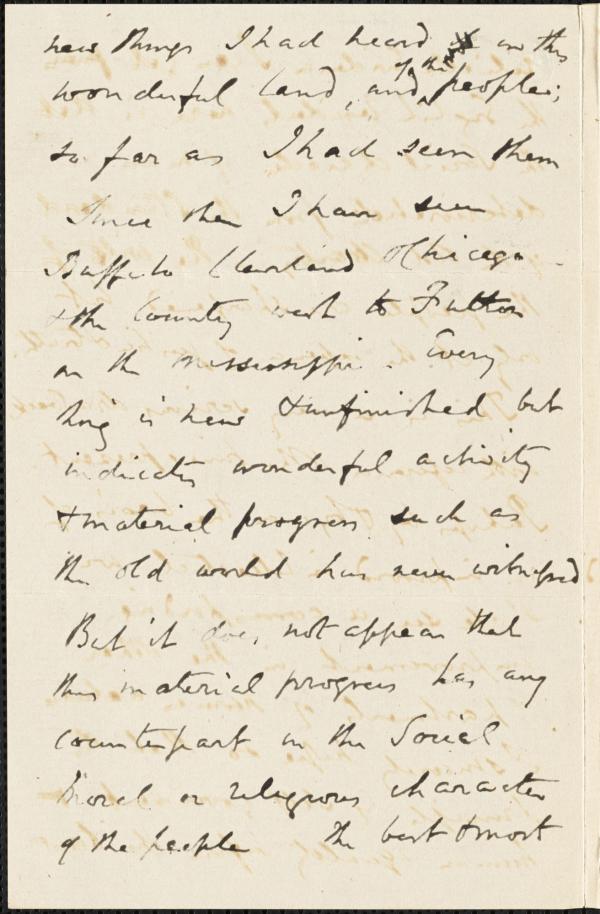 new things I had heard in this
wonderful land, and of the people;
so far as I had seen them
Since then I have seen
Buffalo Cleveland & Chicago
& the Country west to Fulton
on the Mississippi. Every
thing is new & unfinished but
indicates wonderful activity
& material progress such as
the old world has never witnessed
But it does not appear that
this material progress has any
counterpart in the Social
Moral or religious character
of the people The best & most